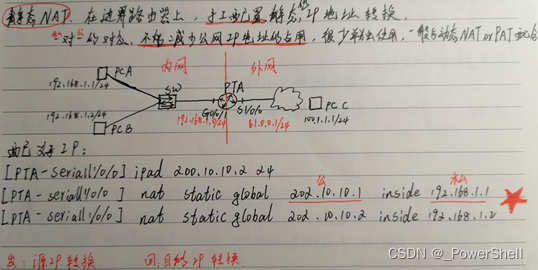 静态NAT. 在边界路由器上, 手工配置静态的IP地址转换.
一对一的对应, 不能减少公网IP地址的占用, 很少单独使用, 一般与动态NAT or PAT配合
PCA
内网
外网
192.168.1.1/24
SW
PTA
G0/0/1
S1/0/0
PC C
192.168.1.2/24
61.0.0.1/24
100.1.1.1/24
PCB
配好IP:
[PTA-serial1/0/0] ipad 200.10.10.2 24
公
私
[PTA-serial1/0/0] nat static global 202.10.10.1 inside 192.168.1.1
[PTA-serial1/0/0] nat static global 202.10.10.2 inside 192.168.1.2
出: 源IP转换
回: 目的IP转换.
CSDN @_PowerShell